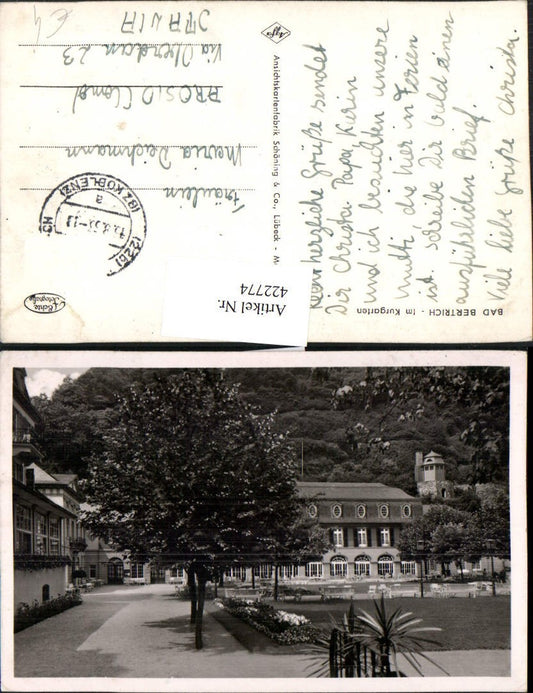 Recht herzliche Grüße sendet
Dir Christa. Papa, Karin
und ich besuchten unsere
Mutti die hier in Ferien
ist. Schreibe Dir bald einen
ausführlichen Brief.
Viele liebe Grüße Christa.
BAD BERTRICH - Im Kurgarten
Agfa
Ansichtskartenfabrik Schöning & Co., Lübeck - M
Fräulein
Maria Deichmann
AROSIO (Como)
Via Oberdan 23
ITALIA
(22b)
(BZ. KOBLENZ)
a
Echte
Fotografie
Artikel Nr.
422774